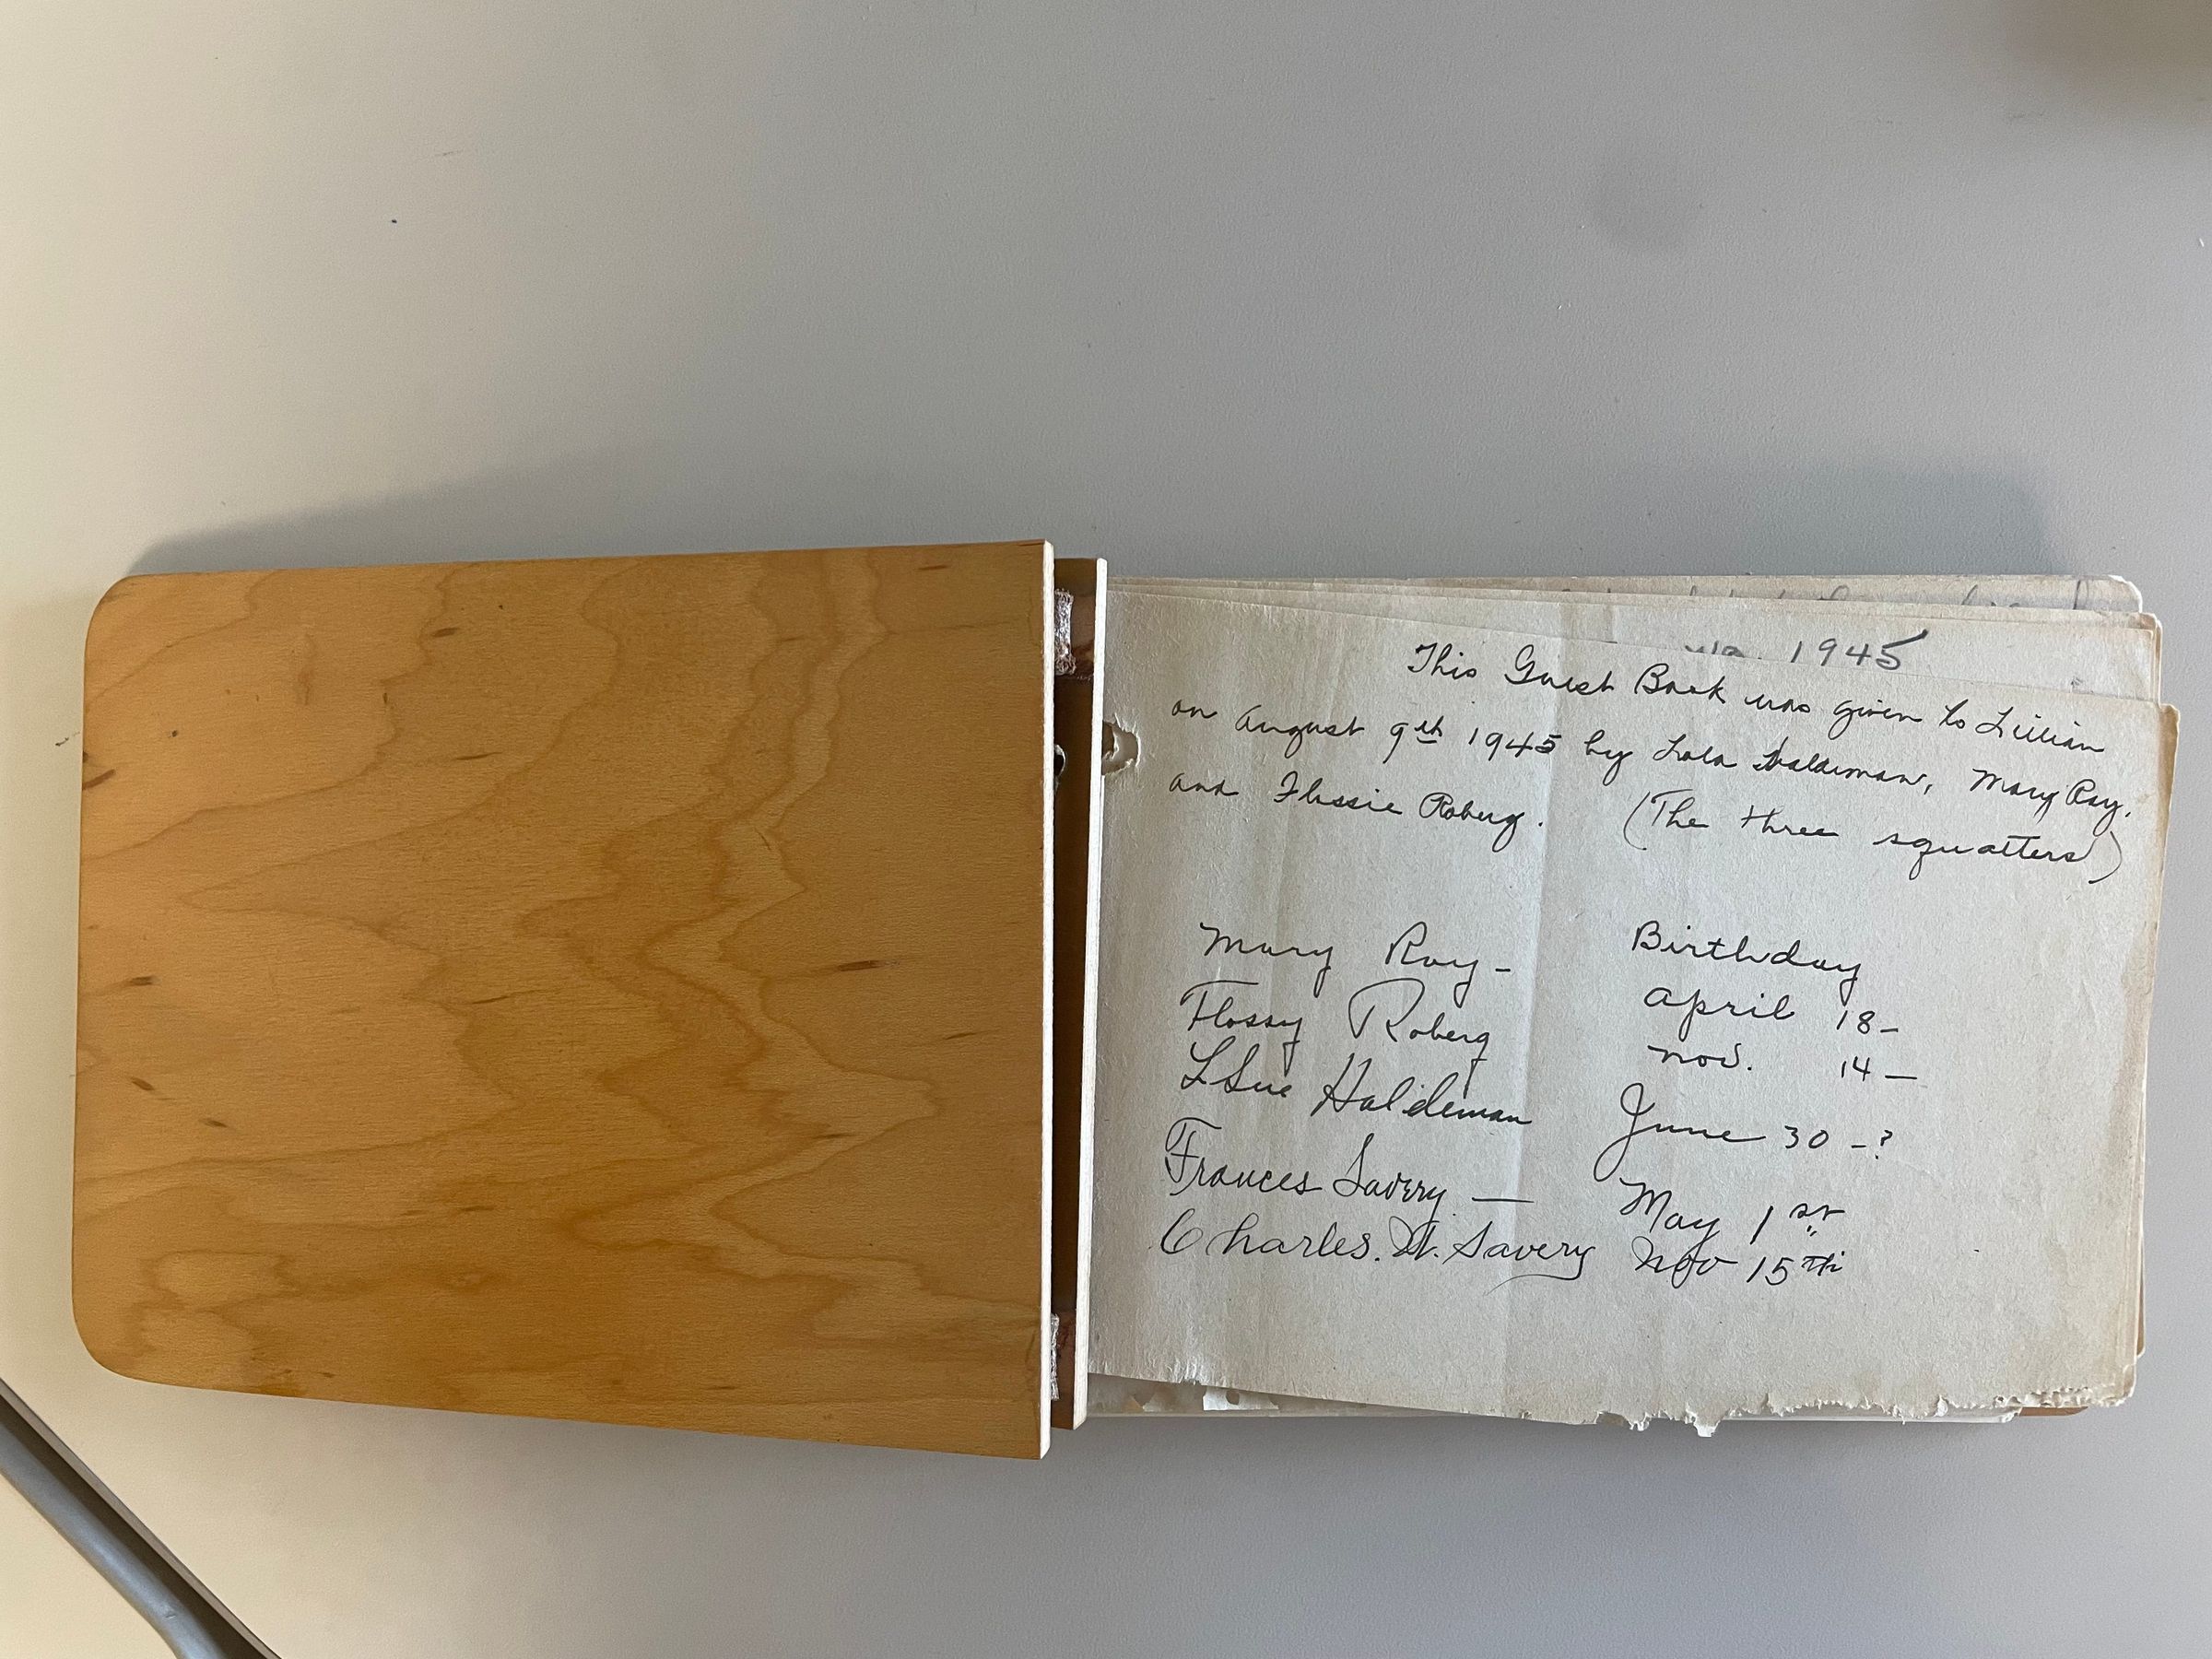 1945
This Guest Book was given to Lillian
on August 9th 1945 by Lola Haldeman, Mary Ray.
and Flossie Roberg. (The three squatters)
Birthday
Mary Ray - April 18 -
Flossy Roberg Nov. 14 -
L Sue Haldeman June 30 - ?
Frances Savery — May 1st
Charles. W. Savery Nov 15th